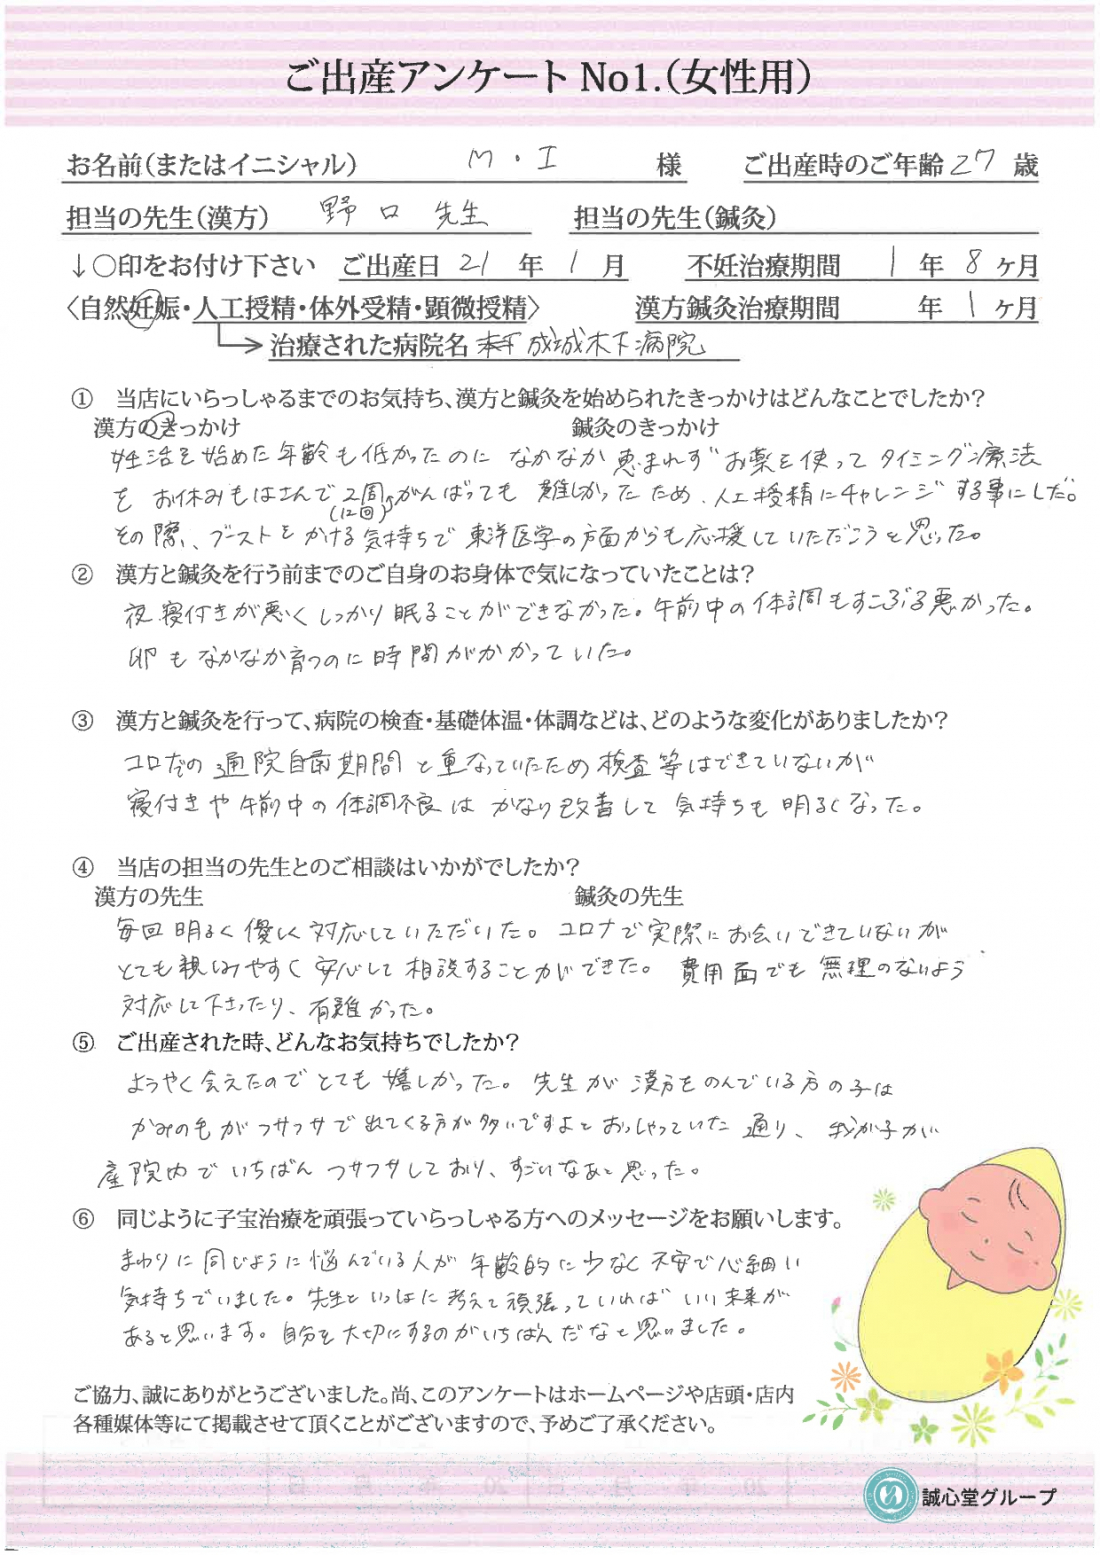 ご出産アンケート No1.(女性用)
お名前(またはイニシャル) M・I 様 ご出産時のご年齢 27 歳
担当の先生(漢方) 野口 先生 担当の先生(鍼灸)
↓○印をお付け下さい ご出産日 21 年 1 月 不妊治療期間 1 年 8 ヶ月
〈自然妊娠・人工授精・体外受精・顕微授精〉 漢方鍼灸治療期間 年 1 ヶ月
治療された病院名 成城木下病院
① 当店にいらっしゃるまでのお気持ち、漢方と鍼灸を始められたきっかけはどんなことでしたか?
漢方のきっかけ 鍼灸のきっかけ
妊活を始めた年齢も低かったのに なかなか恵まれず お薬を使って タイミング療法
を お休みもはさんで2周がんばっても 難しかったため、人工授精にチャレンジする事にした。
(12回)
その際、ブーストをかける気持ちで 東洋医学の方面からも応援していただこうと思った。
② 漢方と鍼灸を行う前までのご自身のお身体で気になっていたことは?
夜、寝付きが悪くしっかり眠ることができなかった。午前中の体調もすこぶる悪かった。
卵もなかなか育つのに時間がかかっていた。
③ 漢方と鍼灸を行って、病院の検査・基礎体温・体調などは、どのような変化がありましたか?
コロナの通院自粛期間と重なっていたため 検査等はできていないが
寝付きや午前中の体調不良は かなり改善して 気持ちも明るくなった。
④ 当店の担当の先生とのご相談はいかがでしたか?
漢方の先生 鍼灸の先生
毎回明るく優しく対応していただいた。コロナで実際にお会いできていないが
とても親しみやすく安心して相談することができた。 費用面でも無理のないよう
対応して下さったり、有難かった。
⑤ ご出産された時、どんなお気持ちでしたか?
ようやく会えたのでとても嬉しかった。先生が漢方をのんでいる方の子は
かみの毛がフサフサで出てくる方が多いですよとおっしゃっていた通り、我が子が
産院内でいちばんフサフサしており、すごいなあと思った。
⑥ 同じように子宝治療を頑張っていらっしゃる方へのメッセージをお願いします。
まわりに同じように悩んでいる人が年齢的に少なく不安で心細い
気持ちでいました。先生といっしょに考えて頑張っていれば いい未来が
あると思います。自分を大切にするのがいちばんだなと思いました。
ご協力、誠にありがとうございました。尚、このアンケートはホームページや店頭・店内
各種媒体等にて掲載させて頂くことがございますので、予めご了承ください。
誠心堂グループ